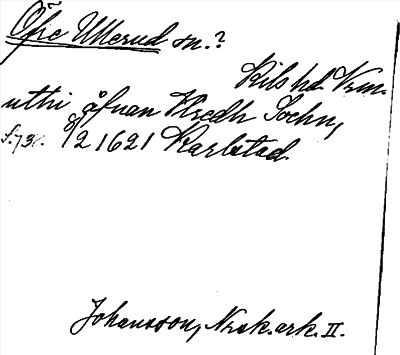 Öfre Ullerud sn.?
Kils hd Vrm.
uthi åfuan Hredh Sochn,
f. 73v. 8/2 1621 Karlstad.
Johansson, Nsk. ark. II.